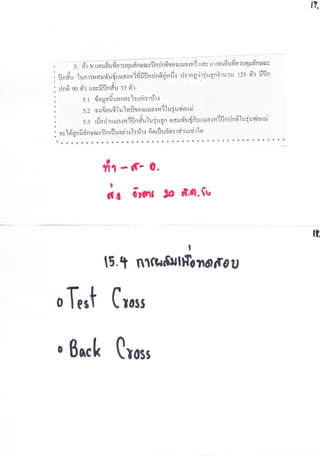 17.
5. ถ้า N แทนยีนที่ควบคุมลักษณะปีกปกติของแมลงหวี่ และ n แทนยีนที่ควบคุมลักษณะ
ปีกสั้น ในการผสมแมลงหวี่ที่มีปีกปกติคู่หนึ่ง ปรากฏว่ารุ่นลูกจำนวน 123 ตัว มีปีก
ปกติ 90 ตัว และมีปีกสั้น 33 ตัว
5.1 ข้อมูลนี้บอกอะไรแก่เราบ้าง
5.2 จงเขียนจีโนไทป์ของแมลงหวี่ในรุ่นพ่อแม่
5.3 เมื่อนำแมลงหวี่ปีกสั้นในรุ่นลูก ผสมพันธุ์กับแมลงหวี่ปีกปกติในรุ่นพ่อแม่
จะได้ลูกมีลักษณะปีกเป็นอย่างไรบ้าง คิดเป็นอัตราส่วนเท่าใด
ทำ - ส - อ.
ส่ง อังคาร 20 ส.ค.
18.
15.4 การผสมเพื่อทดสอบ
o Test Cross
o Back Cross